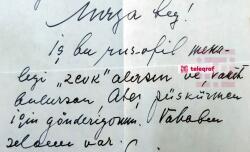 Mirza beg!
İş bu rusofil meka-
legi "zevk" alersın ve, vakıt
bulursan, Ateş püskürmen
için gönderigorum. Vahabın
selamı var.
teleqraf